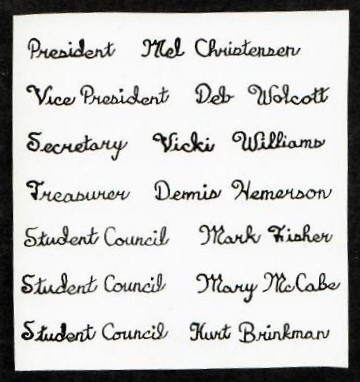 President Mel Christensen
Vice President Deb Wolcott
Secretary Vicki Williams
Treasurer Dennis Hemerson
Student Council Mark Fisher
Student Council Mary McCabe
Student Council Kurt Brinkman